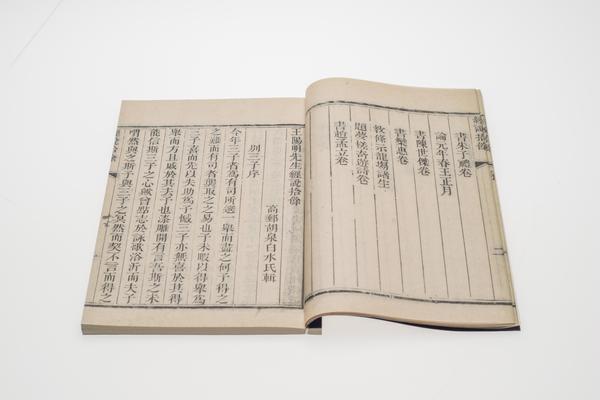 二
書朱子禮卷
論元年春王正月
書陳世傑卷
書欒惠卷
教條示龍場諸生
題夢槎奇遊詩卷
書趙孟立卷
王陽明先生經說拾餘
高郵胡泉白水氏輯
別三子序
今年三子者爲有司所選一舉而盡之何予得之
之難而有司者襲取之之易也予未暇以得舉爲
三子喜而先以失助爲予憾三子亦無喜於其得
舉而方且戚於其去予也漆雕開有言吾斯之未
能信斯三子之心歟曾點志於詠歌浴沂而夫子
喟然與之斯予與三子之冥然而契不言而得之